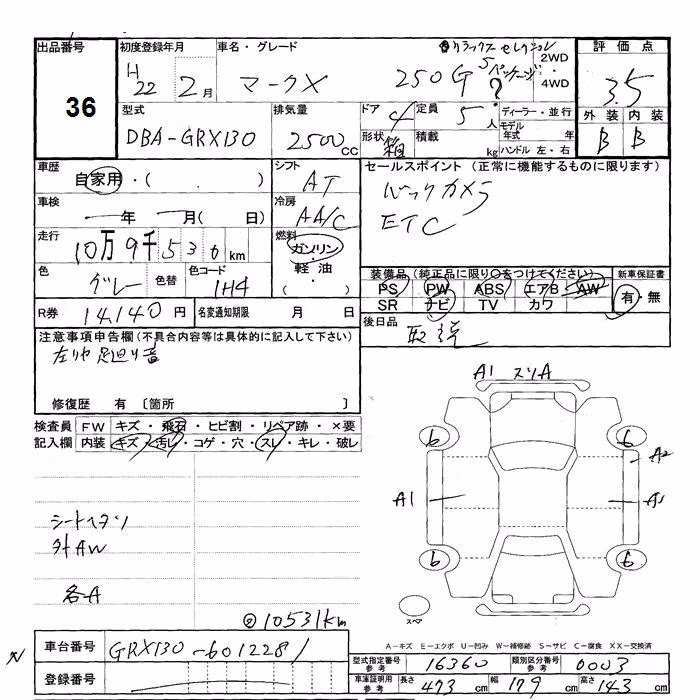 出品番号 初度登録年月 車名・グレード 評価点
36 H22 2月 マークX 250G リラックスセレクション Sパッケージ? 2WD・4WD 3.5
型式 排気量 ドア 4 定員 5人 ディーラー・並行 外装 内装
DBA-GRX130 2500cc 形状 箱 積載 kg モデル年式 年 B B
ハンドル 左・右
車歴 自家用・( ) シフト AT セールスポイント (正常に機能するものに限ります)
車検 ー年 ー月( 日) 冷房 AA/C バックカメラ
ETC
走行 10万9千53 km 燃料 ガソリン・軽油・( )
色 グレー 色替 色コード 1H4
装備品(純正品に限り○をつけてください) 新車保証書
PS PW ABS エアB AW 有・無
SR ナビ TV カワ
R券 14,140円 名変通知期限 月 日 後日品 取説
注意事項申告欄(不具合内容等は具体的に記入して下さい)
左リヤ足廻り音
修復歴 有 〔箇所 〕
A1 スソA
検査員 FW キズ・飛石・ヒビ割・リペア跡・×要
記入欄 内装 キズ・汚レ・コゲ・穴・スレ・キレ・破レ
6 6
A2
A1 A1
シートヘタリ
外AW
6 6
各A
② 10531km
スペア
A-キズ E-エクボ U-凹み W-補修跡 S-サビ C-腐食 XX-交換済
車台番号 GRX130-6012281
登録番号
型式指定番号 参考 16360 類別区分番号 参考 0003
車庫証明用 参考 長さ 473cm 幅 179cm 高さ 143cm